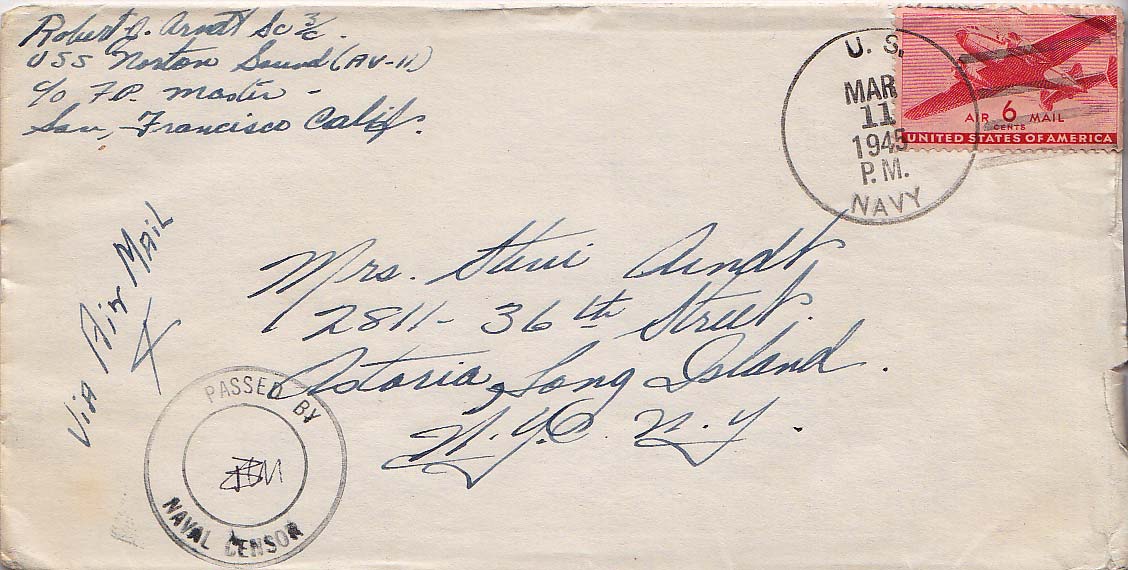 Robert J. Arndt Sc 3/c.
USS Norton Sound (AV-11)
c/o F.P. Master -
San, Francisco Calif.
U. S.
MAR
11
1945
P. M.
NAVY
AIR 6 MAIL
CENTS
UNITED STATES OF AMERICA
Via Air Mail
Mrs. Stevi Arndt
2811- 36th Street.
Astoria, Long Island.
N.Y.C. N.Y.
PASSED BY
NAVAL CENSOR